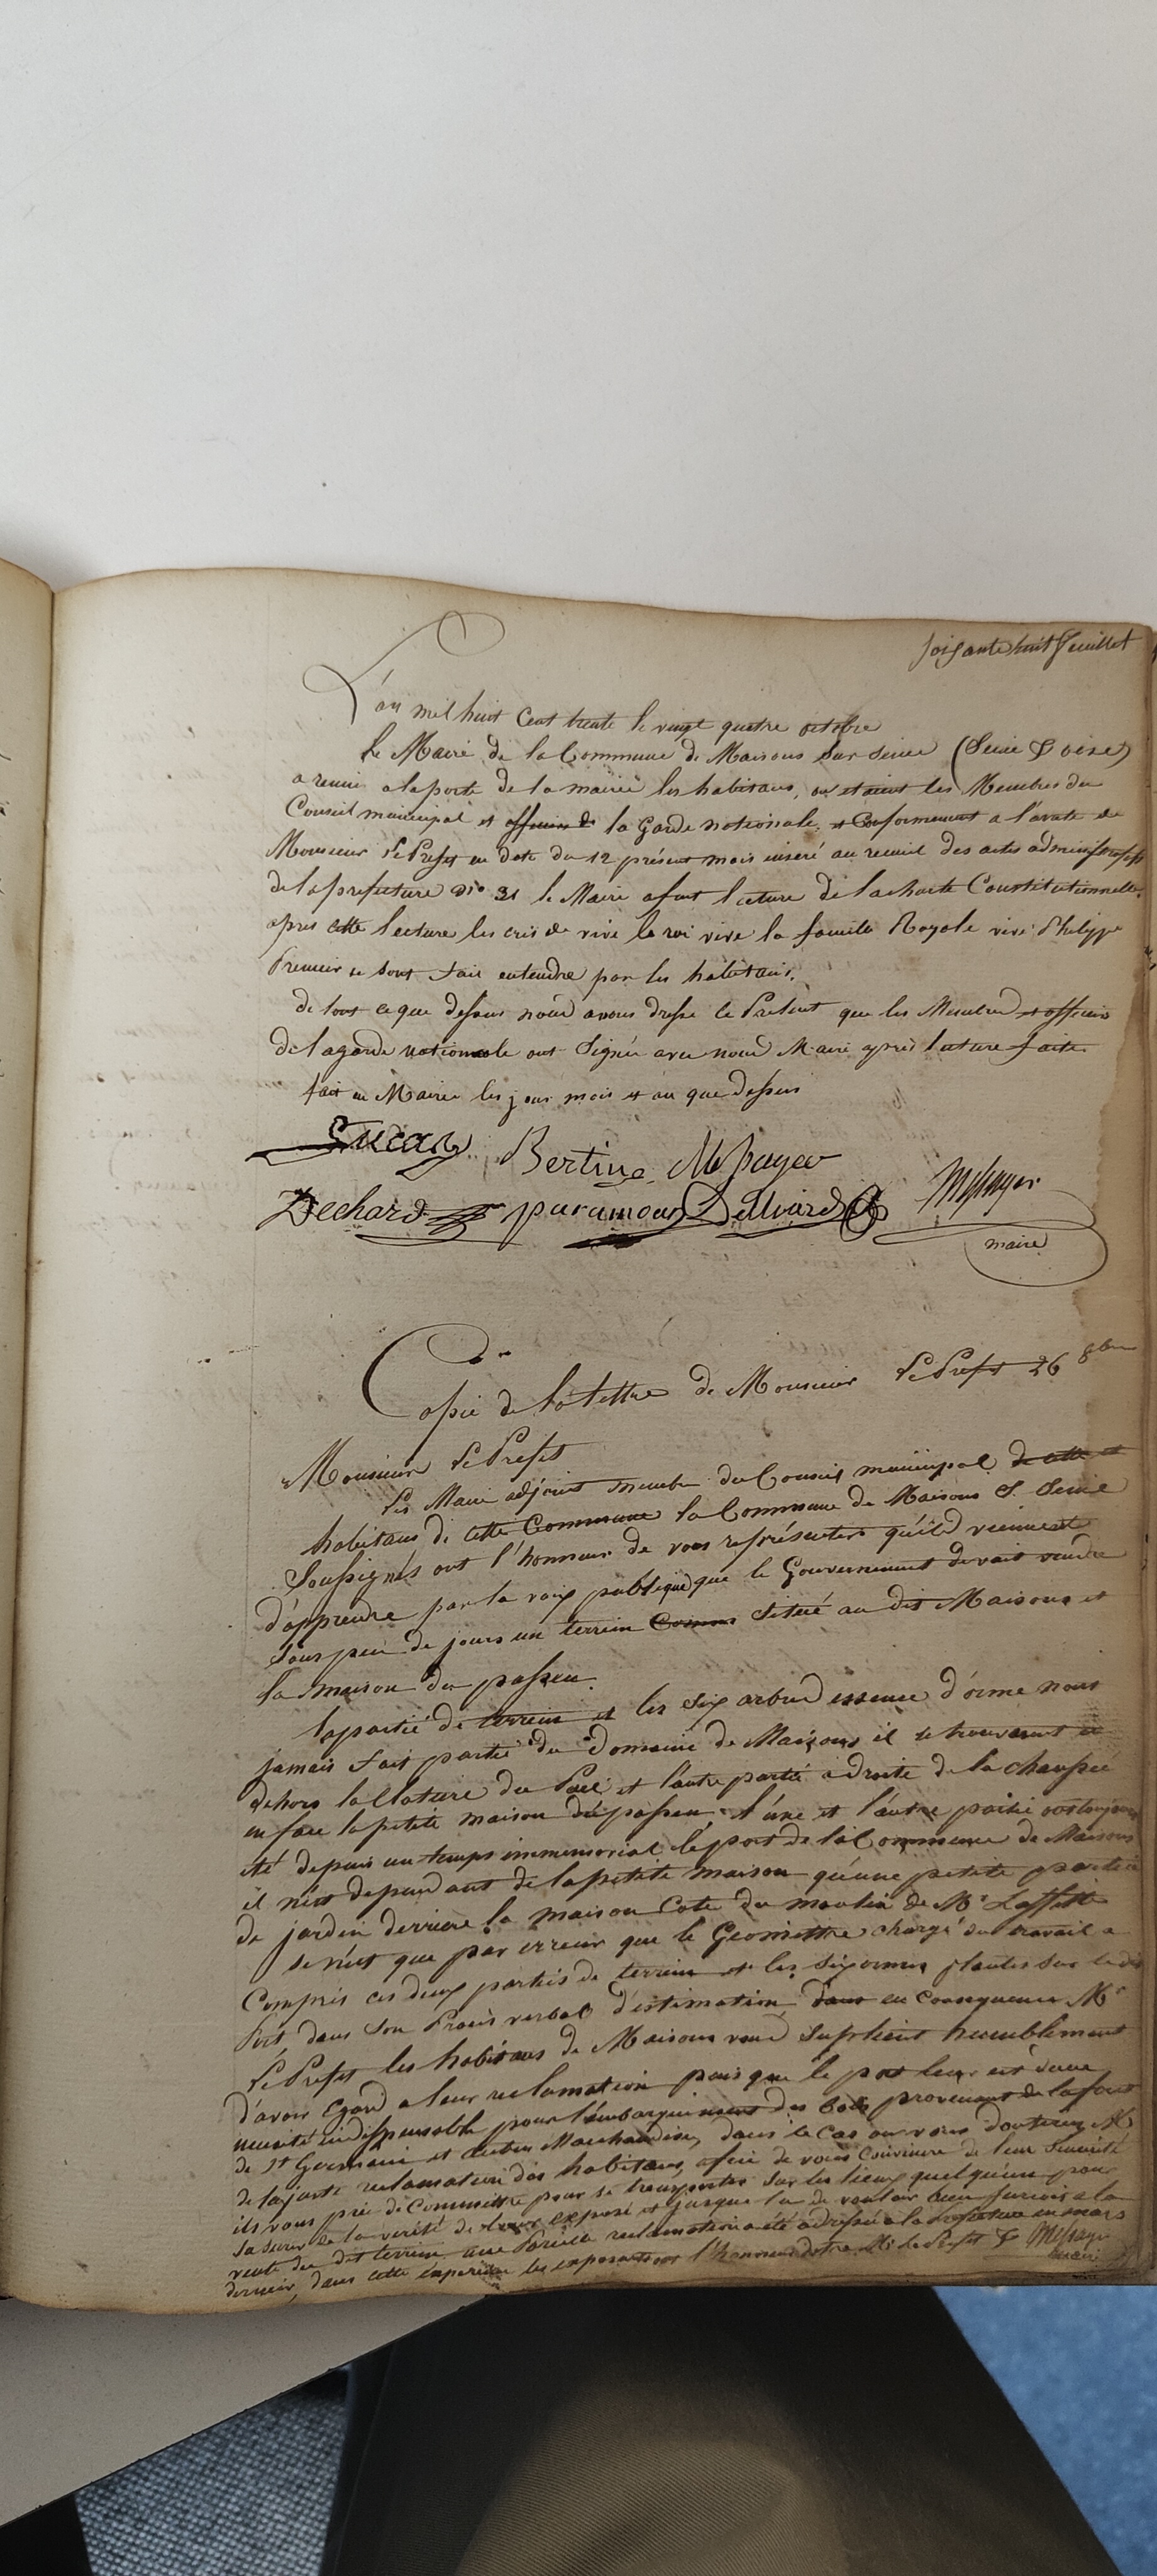 soixante huit feuillet
L'an mil huit Cent trente le vingt quatre octobre
Le Maire de la Commune de Maisons sur Seine (Seine & oise)
a reuni a la porte de la mairie les habitans, ou etaient les Membres du
Conseil municipal et officiers de la Garde nationale, et Conformement a l'arreté de
Monsieur Le Prefet en date du 12 présent mois inseré au recueil des actes administratifs
de la prefecture N° 31 le Maire a fait lecture de la charte Constitutionnelle.
apres cette lecture les cris de vive le roi vive la famille Royale vive Philippe
Premier se sont fait entendre par les habitans.
de tout ce que dessus nous avons dressé le Present que les Membres et officiers
de la garde nationale ont Signée avec nous Maire apres lecture faite.
fait en Mairie les jour mois et an que dessus
Bertine
Dechard paramour
maire
Copie de la lettre de Monsieur Le Prefet 26 8bre
Monsieur Le Prefet
Les Maire adjoint membre du Conseil municipal de cette et
habitans de cette Commune la Commune de Maisons S. Seine
Soussignés ont l'honneur de vous représenter qu'ils viennent
d'apprendre par la voix publique que le Gouvernement devait vendre
sous peu de jours un terrein situé au dit Maisons et
la maison du passeur.
la partie de terrein et les six arbres essence d'orme nont
jamais fait partie du Domaine de Maisons il se trouvaient en
dehors la Cloture du Parc et l'autre partie a droite de la chaussée
en face la petite maison du passeur. l'une et l'autre partie ont toujours
été depuis un temps immemorial le port de la Commune de Maisons
il n'est dependant de la petite maison qu'une petite partie
de jardin derriere la maison Coté du moulin de Mr Laffitte
se n'est que par erreur que le Geomettre chargé du travail a
Compris ces deux parties de terrein et les six ormes plantés sur le dit
Port, dans son Procès verbal d'estimation, dans en Consequence Mr
Le Prefet les habitans de Maisons vous suplient humblement
d'avoir Egard a leur reclamation puis que le port leur est d'une
necessité indispensable pour l'embarquement des bois provenant de la foret
de St Germain et autres Marchandises, dans le Cas ou vous douteriez
de la juste reclamation des habitans, afin de vous Convaincre de leur sincerité
ils vous prie de Committre pour se transporter sur les lieux quelqu'un pour
s'assurer de la verité de leur exposé et jusque la de vouloir bien surseoir a la
vente du dit terrein une Pareille reclamation a été adressée a la Prefecture en mars
dernier, dans cette esperance les exposants ont l'honneur d'etre Mr le Prefet &
maire